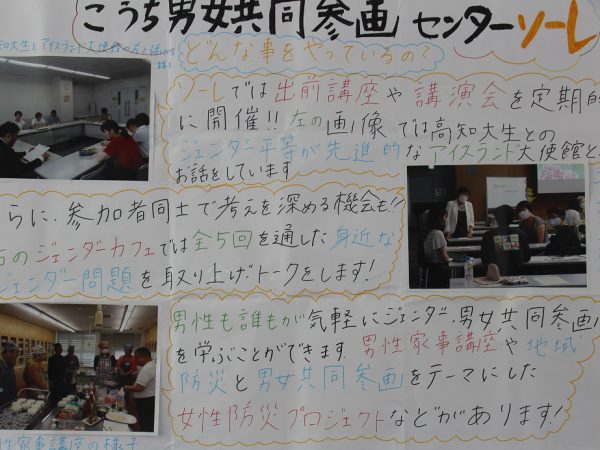 こうち男女共同参画センターソーレ
大生とアイスランド大使館の方と
様子
どんな事をやっているの?
ソーレでは出前講座や講演会を定期的
に開催!!左の画像では高知大生との
ジェンダー平等が先進的なアイスランド大使館と
お話をしています
らに、参加者同士で考えを深める機会も!?
右のジェンダーカフェでは全5回を通した身近な
ジェンダー問題を取り上げトークをします!
男性も誰もが気軽にジェンダー、男女共同参画
を学ぶことができます。男性家事講座や地域
防災と男女共同参画をテーマにした
女性防災プロジェクトなどがあります!
性家事講座の様子